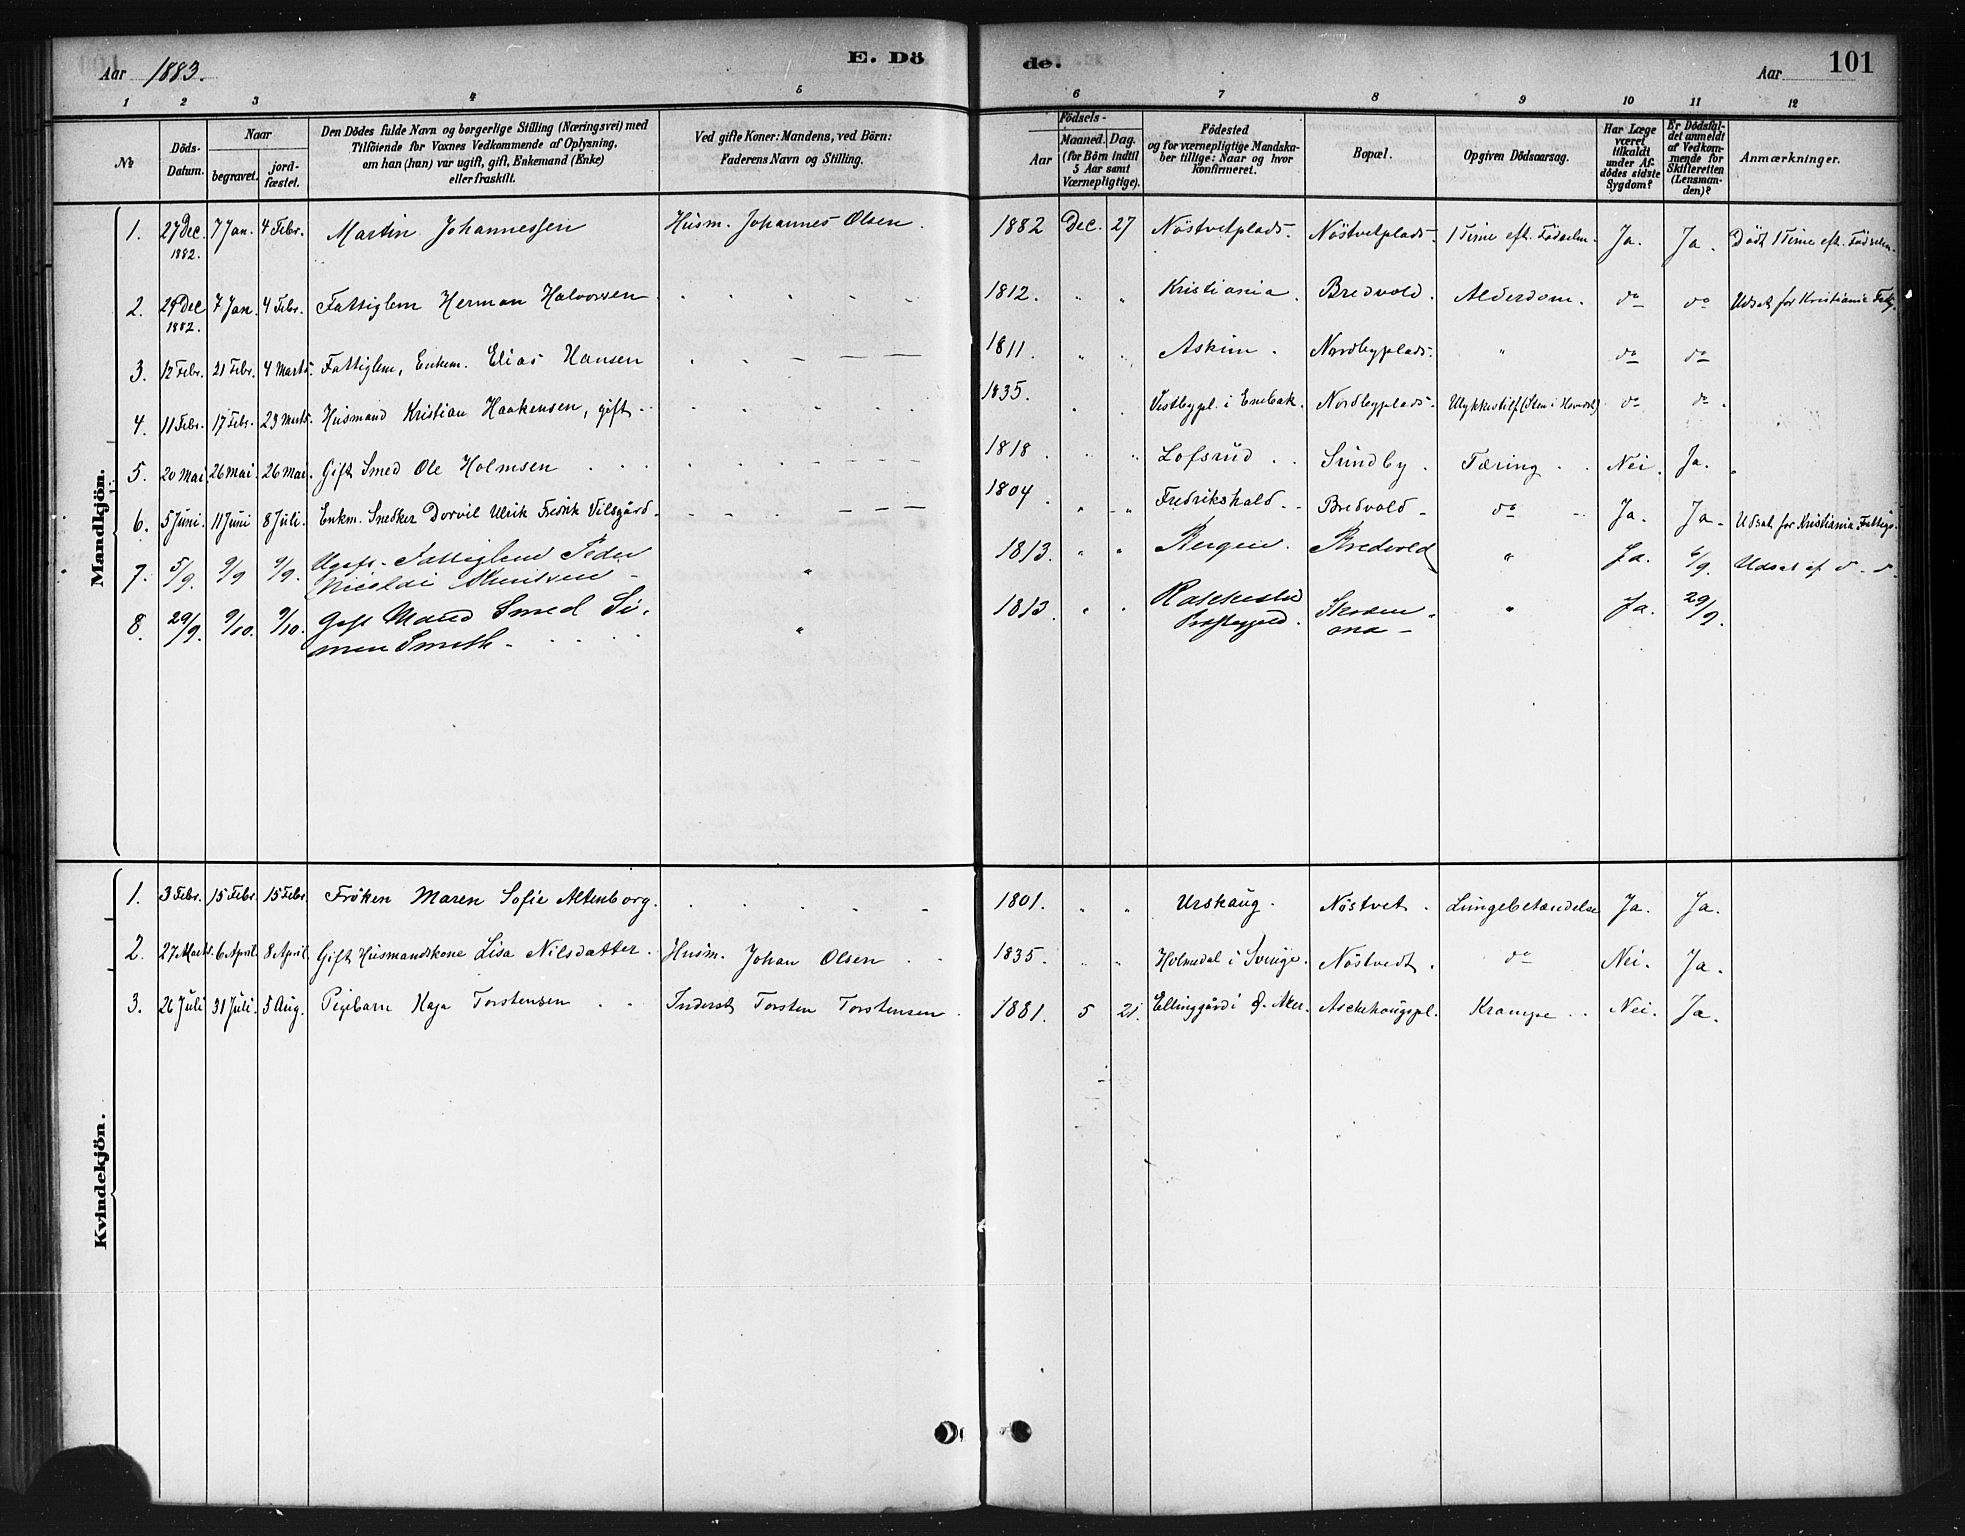 Aar 1883.
E. Dö
de.
Aar
101
1 2 3 4 5 6 7 8 9 10 11 12
No
Döds-Datum.
Naar
begravet.
jord-fæstet.
Den Dödes fulde Navn og borgerlige Stilling (Næringsvei) med
Tilföiende for Voxnes Vedkommende af Oplysning,
om han (hun) var ugift, gift, Enkemand (Enke)
eller fraskilt.
Ved gifte Koner: Mandens, ved Börn:
Faderens Navn og Stilling.
Födsels-
Aar
Maaned. Dag.
(for Börn indtil
5 Aar samt
Værnepligtige).
Födested
og for værnepligtige Mandska-
ber tillige: Naar og hvor
konfirmeret.
Bopæl.
Opgiven Dödsaarsag.
Har Læge
været
tilkaldt
under Af-
dödes sidste
Sygdom?
Er Dödsfal-
det anmeldt
af Vedkom-
mende for
Skifteretten
(Lensman-
den)?
Anmærkninger.
Mandkjön.
1. 27 Dec. 1882. 7 Jan. 4 Febr. Martin Johannessen Husm. Johannes Olsen. 1882 Dec. 27 Nöstvetplads. Nöstvetplads. 1 Time eft. Födselen. Ja. Ja. Död 1 Time eft. Födselen.
2. 29 Dec 1882. 7 Jan. 4 Febr. Fattiglem Herman Halvorsen 1812. " " Kristiania. Bredvold. Alderdom. do do Udsat for Kristiania
3. 12 Febr. 21 Febr. 4 Marts. Fattiglem, Enkem. Elias Hansen 1811 " " Askim. Nordbyplads. " do do
4. 11 Febr. 17 Febr. 23 Marts. Husmand Kristian Haakensen, gift. 1835. " " Vestbypl. i Enebak. Nordbyplads. Ulykkestilf. do do.
5. 20 Mai 26 Mai. 26 Mai. Gift Smed Ole Holmsen 1818. " " Lofsrud. Sundby. Tæring. Nei. Ja.
6. 5 Juni. 11 Juni 8 Juli. Enkm. Snedker Dorvil Ulrik Fredrik Vilsgård. 1804. " " Fredrikshald. Bredvold. do Ja. Ja. Udsat for Kristiania Fattigv.
7. 5/9. 9/9 9/9. Ugift. Fattiglem Peder
Nicolai Knutsen " 1813. " " Bergen. Bredvold " Ja. 6/9. Udsat af do do.
8. 29/9. 9/10. 9/10. Gift Mand Smed Si-
men Smith. " 1813. " " Rakkestad
Præstegjeld. " Ja. 29/9.
Kvindekjön.
1. 3 Febr. 15 Febr. 15 Febr. Fröken Maren Sofie Altenborg. 1801. " " Urskaug. Nöstvet. Lungebetændelse Ja. Ja.
2. 27 Marts. 6 April. 8 April. Gift Husmandskone Lisa Nilsdatter. Husm. Johan Olsen 1835. " " Holmedal i Sverige. Nöstvedt. do Nei. Ja.
3. 26 Juli 31 Juli. 5 Aug. Pigebarn Kaja Torstensen Inderst Torsten Torstensen. 1881. 5 21. Ellinggård i Ø. Aker. Aschehougspl. Krampe. Nei. Ja.